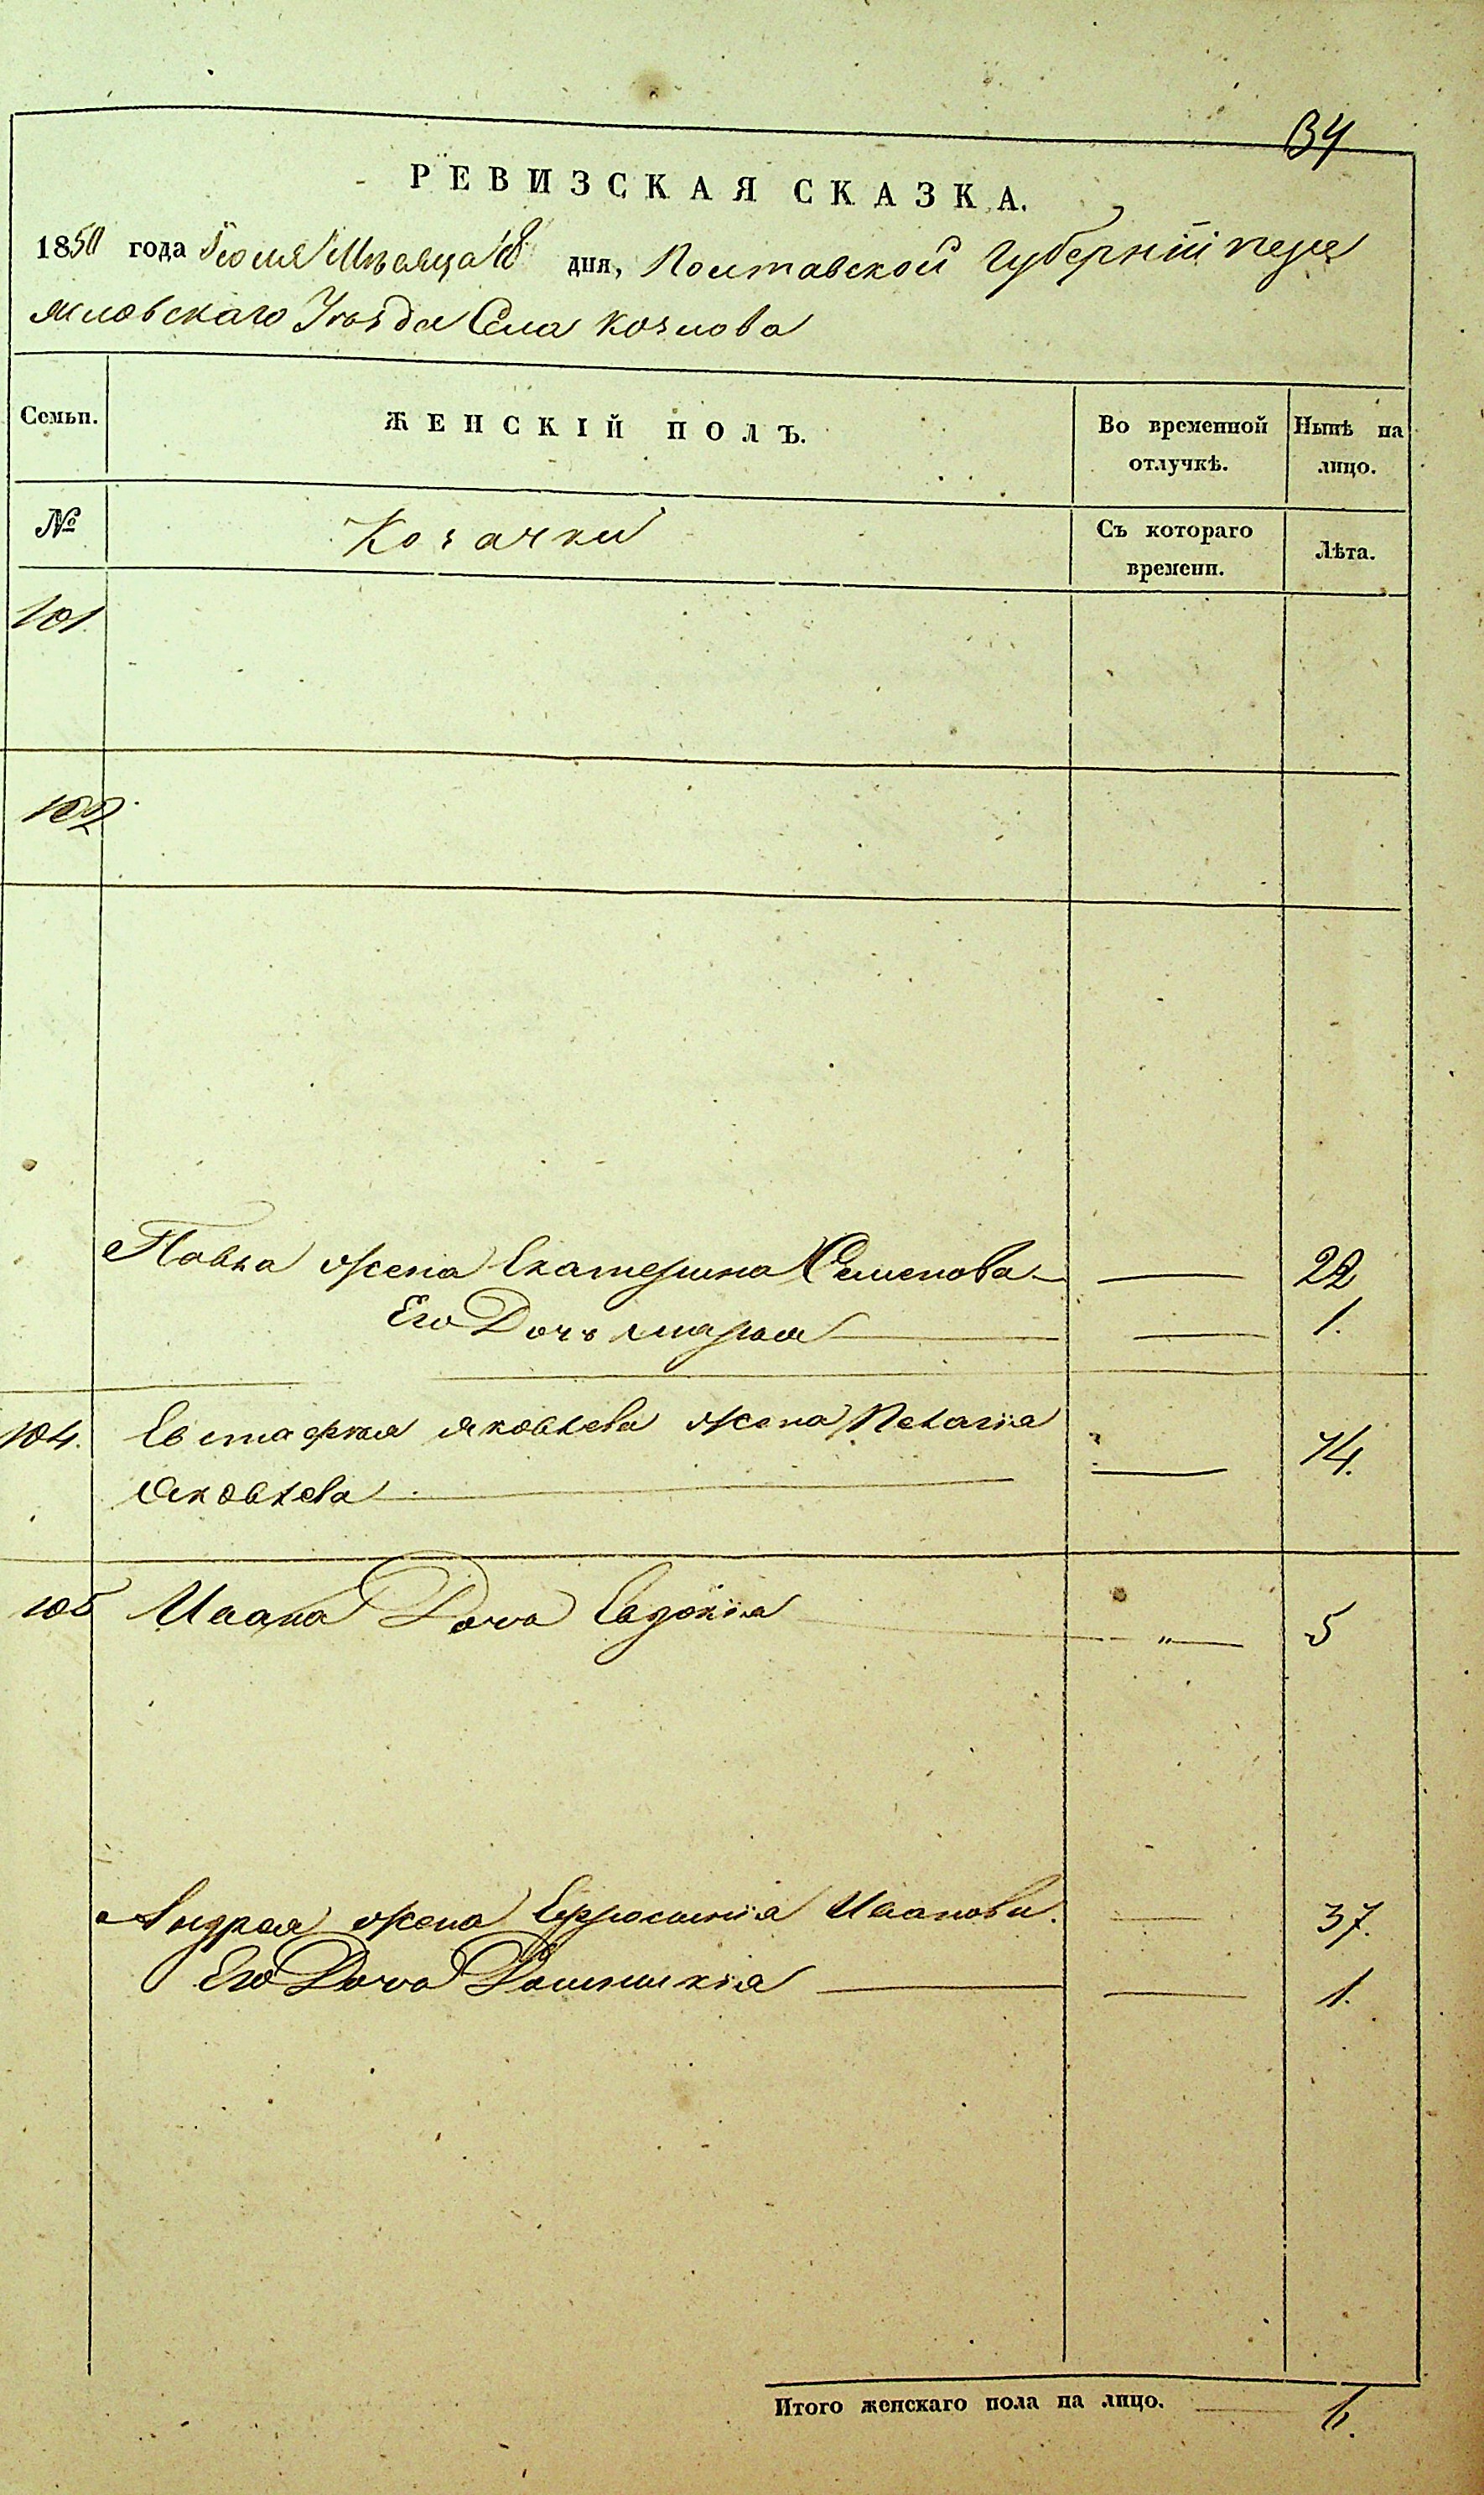 34
РЕВИЗСКАЯ СКАЗКА.
1850 года Июля Мѣсяца 18 дня, Полтавской Губерніи пере
яславскаго Уѣзда Села Козлова
Семьи.
ЖЕНСКІЙ ПОЛЪ.
Во временной отлучкѣ.
Нынѣ на лицо.
№
Козачки
Съ котораго времени.
Лѣта.
101.
102.
Павла жена Екатерина Семенова — — 22
Его Дочь марья — — 1.
104. Евстафия яковлева жена Пелагія
Яковлева — — 74.
105 Ивана Дочь Евдокія — " — 5
Андрея жена Ефросинія Иванова. — 37.
Его Дочь Домникія — — 1.
Итого женскаго пола на лицо. — 6.